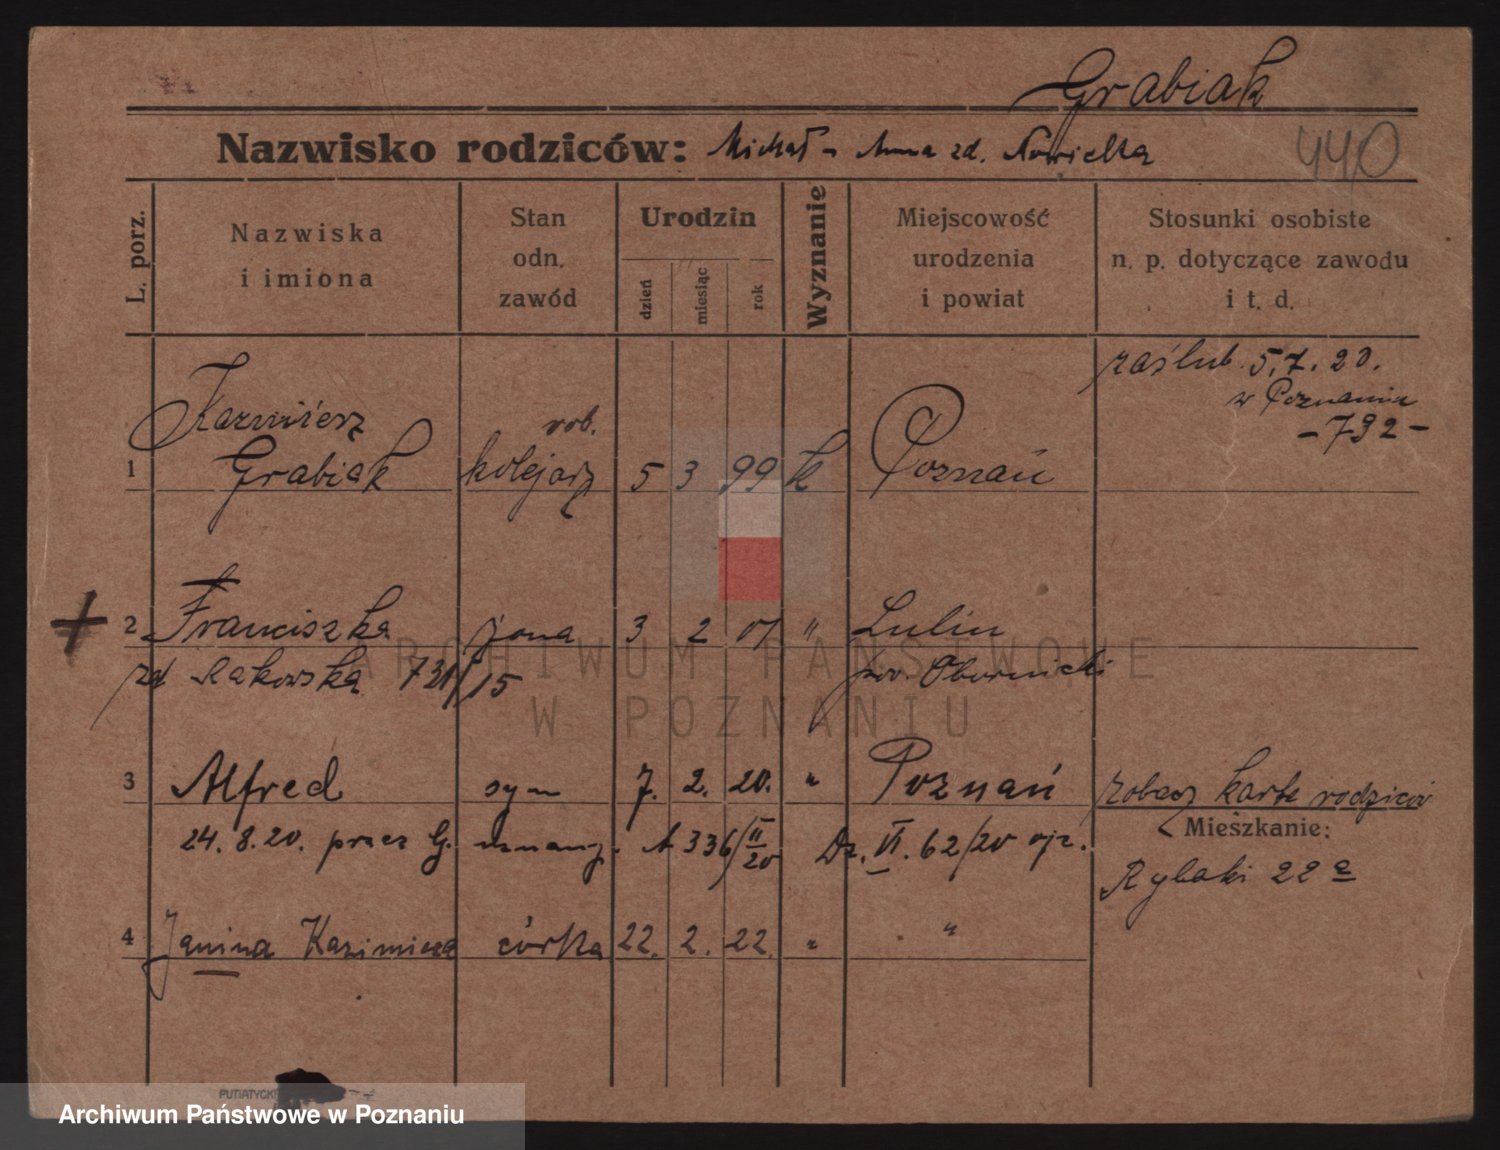 Grabiak
Nazwisko rodziców: Michał - Anna zd. Nowicka
440
L. porz.
Nazwiska
i imiona
Stan
odn.
zawód
Urodzin
dzień
miesiąc
rok
Wyznanie
Miejscowość
urodzenia
i powiat
Stosunki osobiste
n. p. dotyczące zawodu
i t. d.
zaślub. 5.7.20.
w Poznaniu
- 792 -
Kazimierz rob.
1 Grabiak kolejarz 5 3 99 k Poznań
2 Franciszka żona 3 2 01 " Lulin
zd Rakowska 731/15 pow. Obornicki
3 Alfred syn 7. 2. 20. " Poznań zobacz kartę rodziców
24. 8. 20. przez G. uznany. A 336/II/20 Dz. VI. 62/20 ojc.
Mieszkanie:
Rybaki 22 a
4 Janina Kazimiera córka 22. 2. 22. " "
ARCHIWUM PAŃSTWOWE
W POZNANIU
PUTIATYCKI
Archiwum Państwowe w Poznaniu